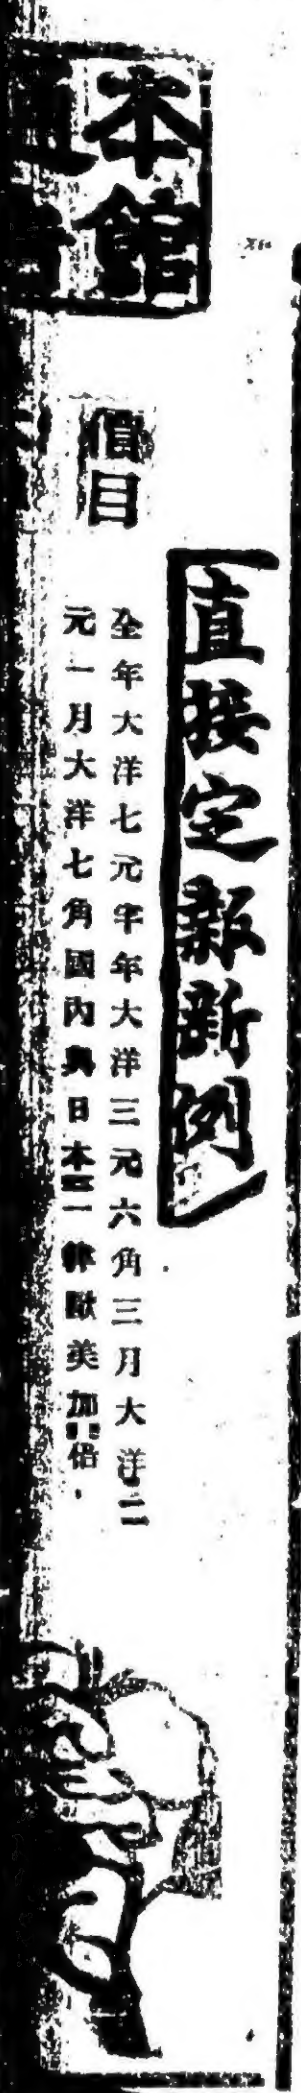 本館
直接定報新例
價目
全年大洋七元半年大洋三元六角三月大洋二
元一月大洋七角國內與日本一律歐美加倍